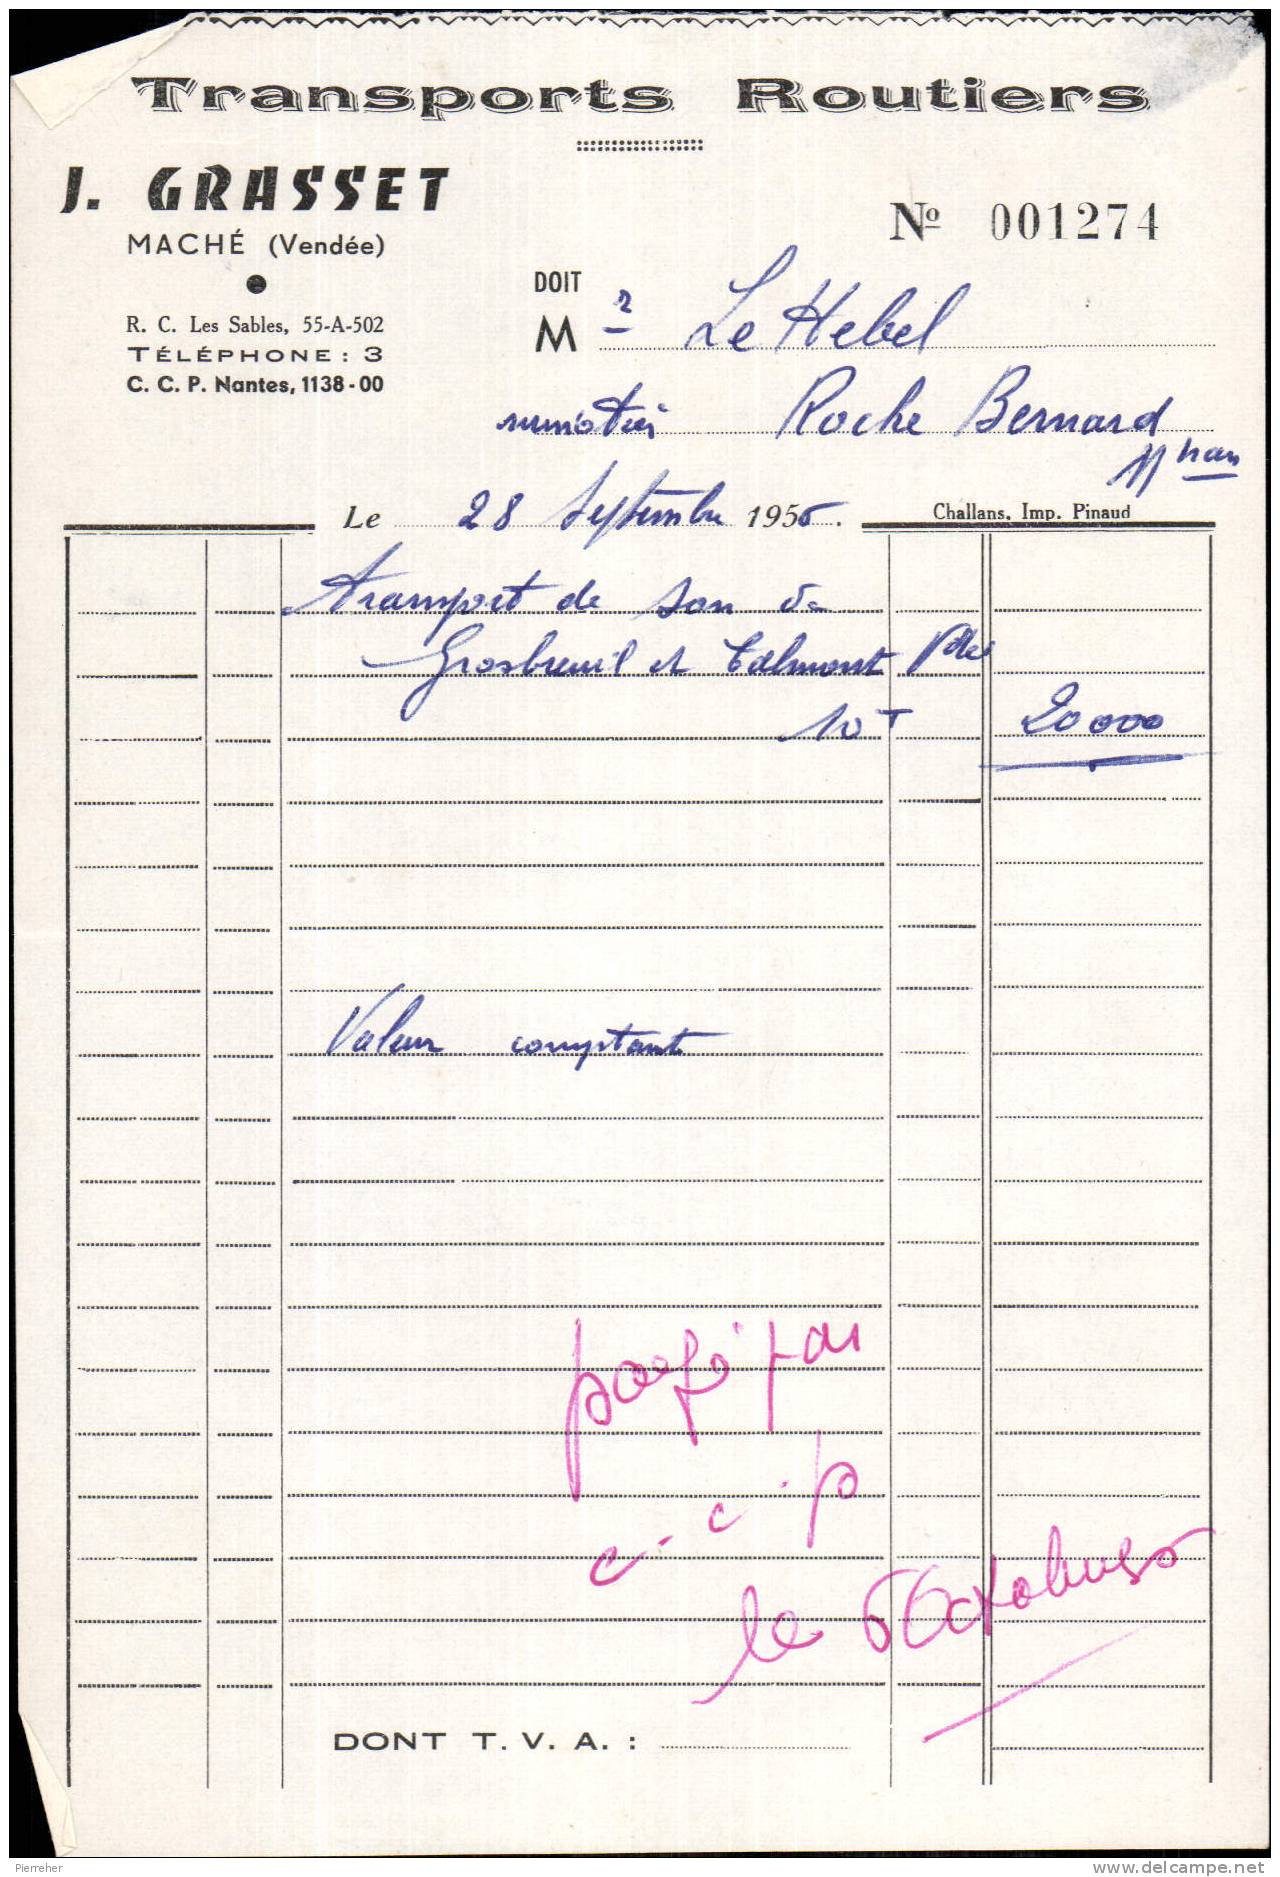 Transports Routiers
J. GRASSET
MACHÉ (Vendée)
R. C. Les Sables, 55-A-502
TÉLÉPHONE : 3
C. C. P. Nantes, 1138-00
Nº 001274
DOIT
M r Le Hebel
minotier Roche Bernard
Mhan
Le 28 Septembre 1956.
Challans, Imp. Pinaud
transport de son de
Grosbreuil et Talmont
10 T 20000
Valeur comptant
payé par
c. c. p
le 6 Octobre 56
DONT T. V. A. :
Pierreher
www.delcampe.net